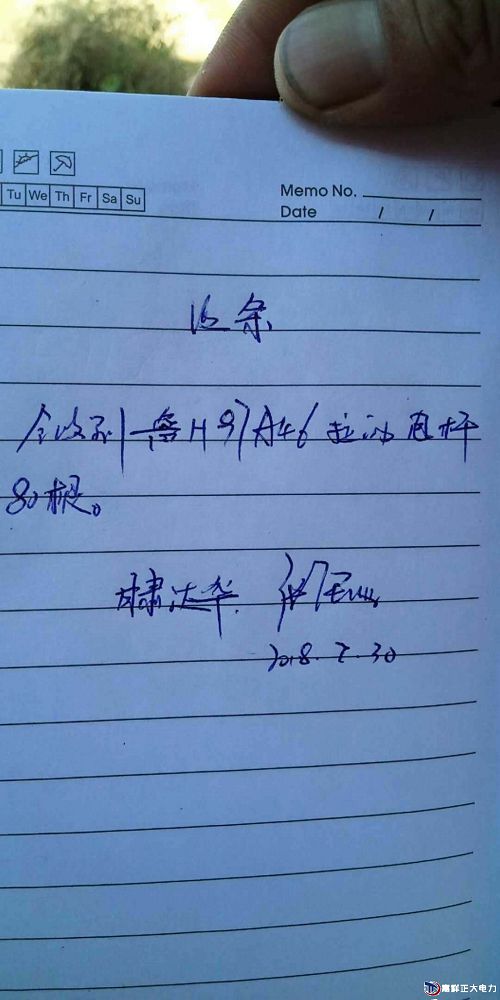 Tu We Th Fr Sa Su
Memo No.
Date / /
收条
今收到鲁H97A46拉来电杆
80根。
2018.7.30
嘉祥正大电力